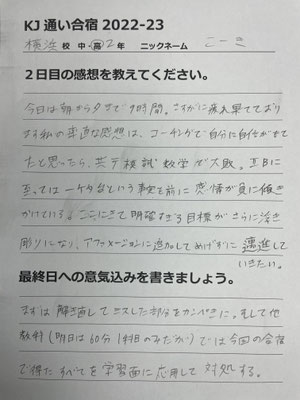 KJ 通い合宿 2022-23
横浜 校 中・高 2年 ニックネーム こーき
2日目の感想を教えてください。
今日は朝から夕まで9時間。さすがに疲れ果てており
ます。私の率直な感想は、コーチングで自分に自信がもて
たと思ったら、共テ模試数学が大敗。ⅡBに
至っては一ケタなという事実を前に 感情が負に傾き
かけている。ここにきて明確すぎる目標がさらに浮き
彫りになり、アファメーションに追加してめげずに 邁進して
いきたい。
最終日への意気込みを書きましょう。
まずは 解き直して ミスした部分をカンペキに。そして他
教科(明日は60分1科目のみだが)では今回の合宿
で得た すべてを 学習面に応用して 対処する。